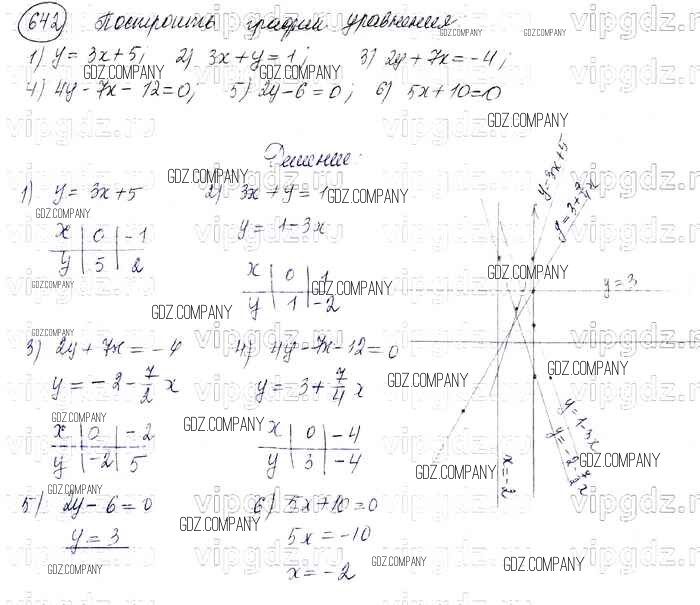 642) Построить график уравнения
1) y = 3x + 5; 2) 3x + y = 1; 3) 2y + 7x = -4;
4) 4y - 7x - 12 = 0; 5) 2y - 6 = 0; 6) 5x + 10 = 0
Решение:
1) y = 3x + 5
x | 0 | -1
y | 5 | 2
2) 3x + y = 1
y = 1 - 3x
x | 0 | 1
y | 1 | -2
3) 2y + 7x = -4
y = -2 - 7/2 x
x | 0 | -2
y | -2 | 5
4) 4y - 7x - 12 = 0
y = 3 + 7/4 x
x | 0 | -4
y | 3 | -4
5) 2y - 6 = 0
y = 3
6) 5x + 10 = 0
5x = -10
x = -2
y = 3x + 5
y = 3 + 7/4 x
y = 3
y = 1 - 3x
y = -2 - 7/2 x
x = -2
GDZ.COMPANY
vipgdz.ru